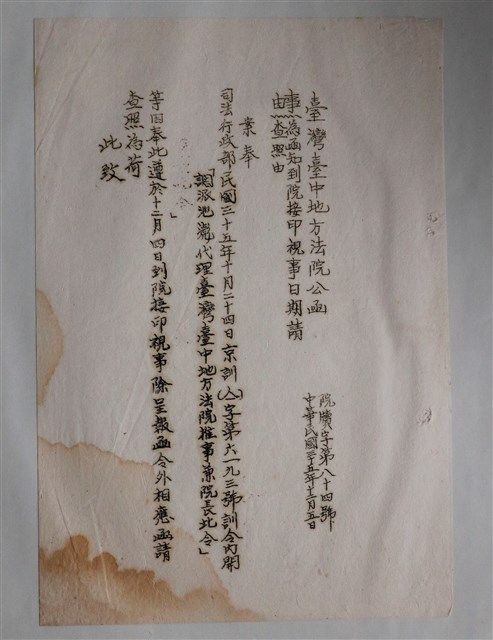 臺灣臺中地方法院公函
事由 為函知到院接印視事日期請
查照由
院牘字第八十四號
中華民國三十五年十二月五日
案奉
司法行政部民國三十五年十月二十四日京訓(人)字第六一九三號訓令內開
「調派池滮代理臺灣臺中地方法院推事兼院長此令」
等因奉此遵於十二月四日到院接印視事除呈報函令外相應函請
查照為荷
此致